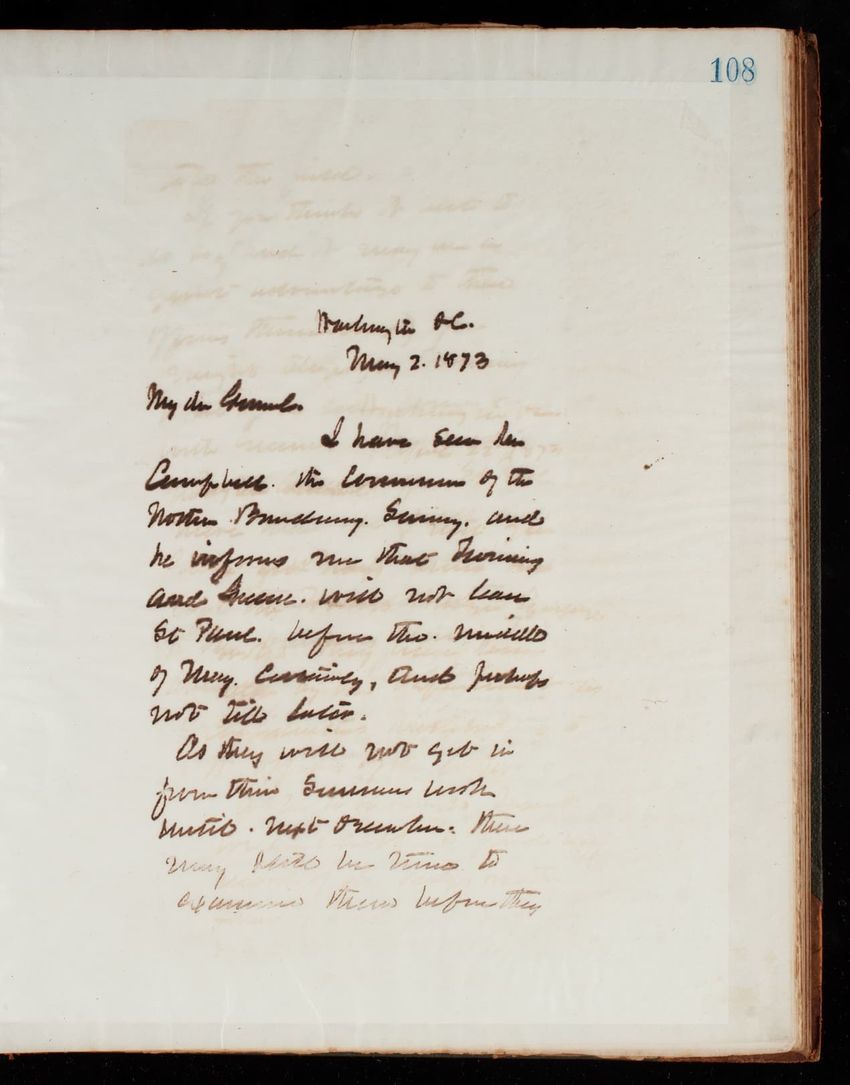 108
Washington D.C.
May 2. 1873
My dear General.
I have seen Mr
Campbell. the Commissioner of the
Northern Boundary. Survey. and
he informs me that Twining
and Greene. will not leave
St Paul. before the. middle
of May. Certainly, and perhaps
not till later.
As they will not get in
from their Summers work
until. next December. there
may still be time to
examine them before they